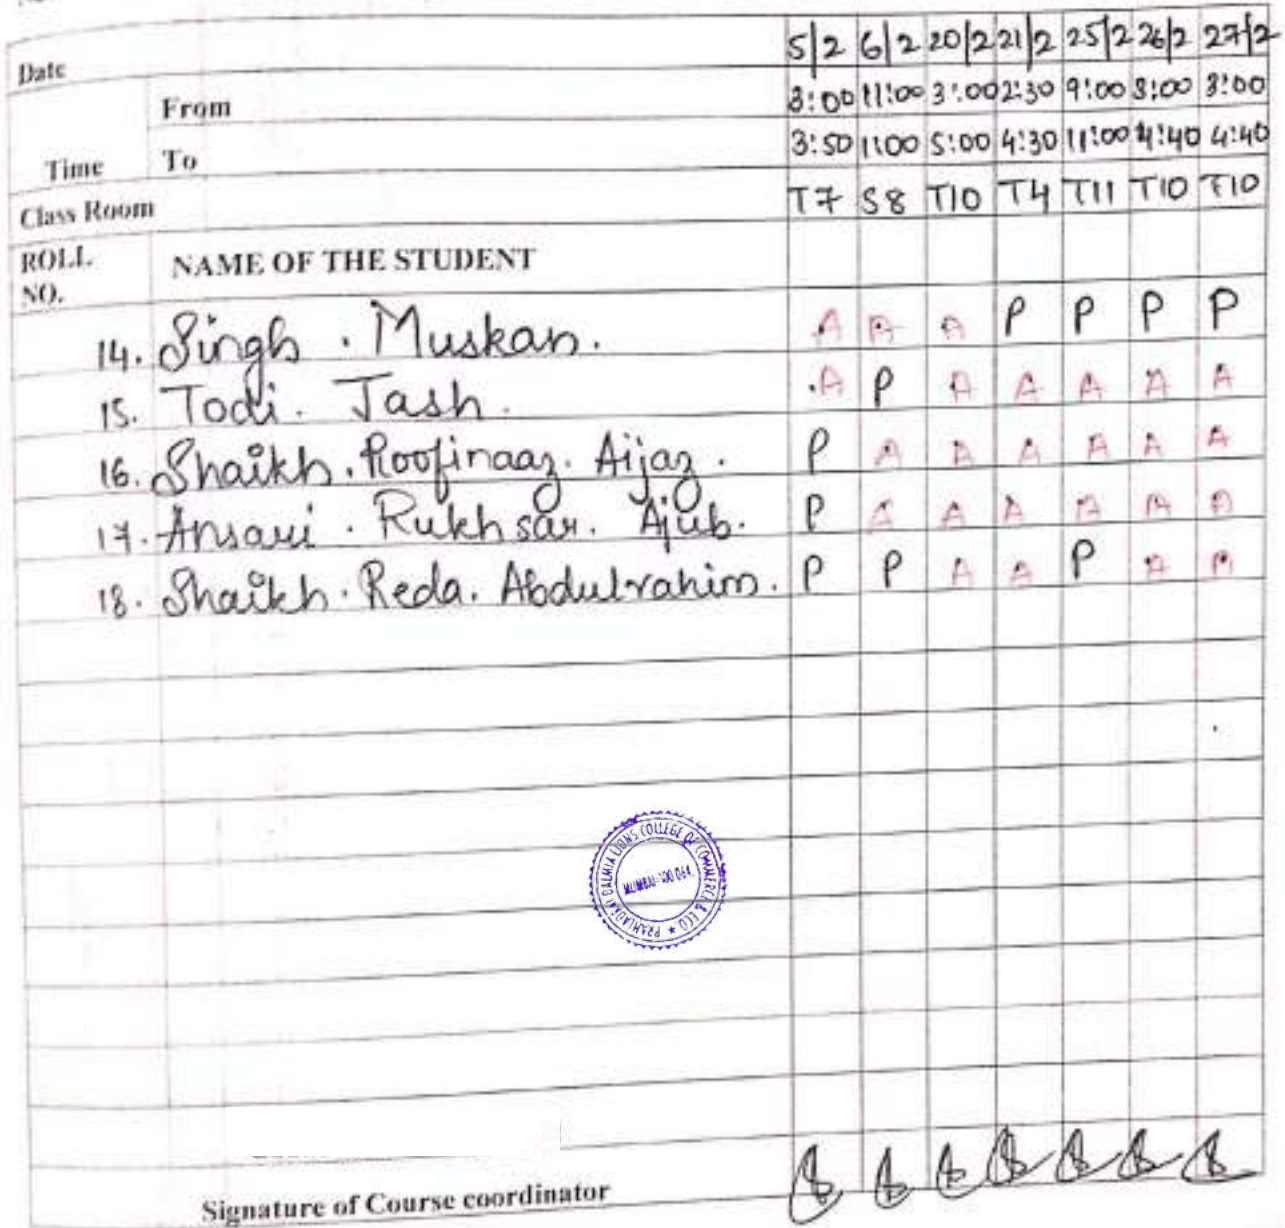 Date 5/2 6/2 20/2 21/2 25/2 26/2 27/2
From 3:00 11:00 3:00 2:30 9:00 3:00 3:00
Time To 3:50 1:00 5:00 4:30 11:00 4:40 4:40
Class Room T7 S8 T10 T4 T11 T10 T10
ROLL NAME OF THE STUDENT
NO.
14. Singh . Muskan. A A A P P P P
15. Todi. Jash. A P A A A A A
16. Shaikh. Roofinaaz. Aijaz. P A A A A A A
17. Ansari . Rukhsar. Ajub. P A A A A A A
18. Shaikh. Reda. Abdulrahim. P P A A P A A
PRAHLADRAI DALMIA LIONS COLLEGE OF COMMERCE & ECO
MUMBAI-400 064.
Signature of Course coordinator